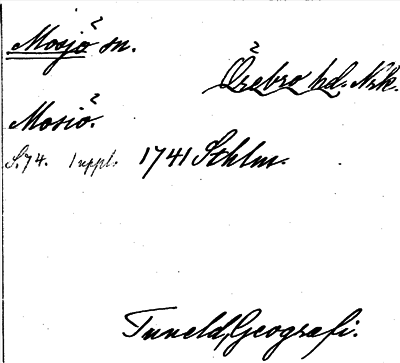 Mosjö sn.
Örebro hd. Nrk.
Mosiö.
S. 74. 1 uppl. 1741 Sthlm.
Tuneld, Geografi.